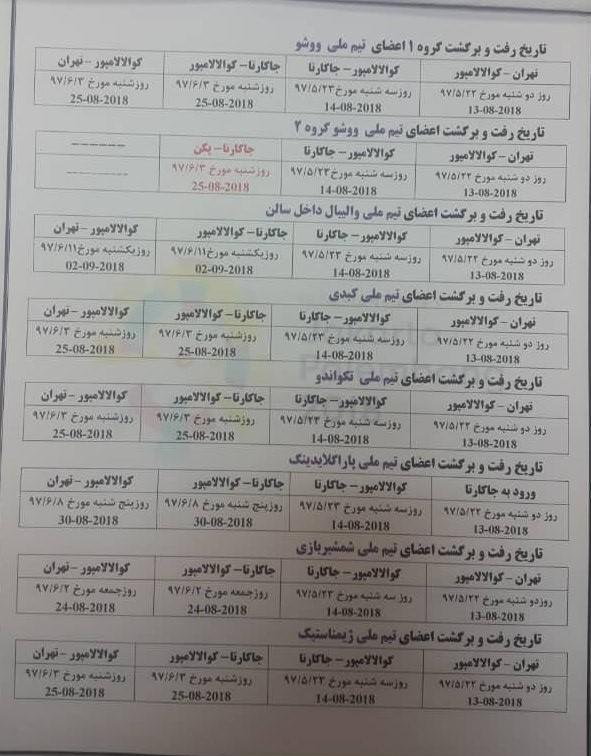 تاریخ رفت و برگشت گروه ۱ اعضای تیم ملی ووشو
تهران – کوالالامپور کوالالامپور – جاکارتا جاکارتا – کوالالامپور کوالالامپور – تهران
روز دو شنبه مورخ ۹۷/۵/۲۲ روزسه شنبه مورخ ۹۷/۵/۲۳ روزشنبه مورخ ۹۷/۶/۳ روزشنبه مورخ ۹۷/۶/۳
13-08-2018 14-08-2018 25-08-2018 25-08-2018
تاریخ رفت و برگشت اعضای تیم ملی ووشو گروه ۲
تهران – کوالالامپور کوالالامپور – جاکارتا جاکارتا – پکن ------
روز دو شنبه مورخ ۹۷/۵/۲۲ روزسه شنبه مورخ ۹۷/۵/۲۳ روزشنبه مورخ ۹۷/۶/۳ ----------
13-08-2018 14-08-2018 25-08-2018
تاریخ رفت و برگشت اعضای تیم ملی والیبال داخل سالن
تهران – کوالالامپور کوالالامپور – جاکارتا جاکارتا – کوالالامپور کوالالامپور – تهران
روز دو شنبه مورخ ۹۷/۵/۲۲ روزسه شنبه مورخ ۹۷/۵/۲۳ روزیکشنبه مورخ ۹۷/۶/۱۱ روزیکشنبه مورخ ۹۷/۶/۱۱
13-08-2018 14-08-2018 02-09-2018 02-09-2018
تاریخ رفت و برگشت اعضای تیم ملی کبدی
تهران – کوالالامپور کوالالامپور – جاکارتا جاکارتا – کوالالامپور کوالالامپور – تهران
روز دو شنبه مورخ ۹۷/۵/۲۲ روزسه شنبه مورخ ۹۷/۵/۲۳ روزشنبه مورخ ۹۷/۶/۳ روزشنبه مورخ ۹۷/۶/۳
13-08-2018 14-08-2018 25-08-2018 25-08-2018
تاریخ رفت و برگشت اعضای تیم ملی تکواندو
تهران – کوالالامپور کوالالامپور – جاکارتا جاکارتا – کوالالامپور کوالالامپور – تهران
روز دو شنبه مورخ ۹۷/۵/۲۲ روزسه شنبه مورخ ۹۷/۵/۲۳ روزشنبه مورخ ۹۷/۶/۳ روزشنبه مورخ ۹۷/۶/۳
13-08-2018 14-08-2018 25-08-2018 25-08-2018
تاریخ رفت و برگشت اعضای تیم ملی پاراگلایدینگ
ورود به جاکارتا کوالالامپور – جاکارتا جاکارتا – کوالالامپور کوالالامپور – تهران
روز دو شنبه مورخ ۹۷/۵/۲۲ روزسه شنبه مورخ ۹۷/۵/۲۳ روزپنج شنبه مورخ ۹۷/۶/۸ روزپنج شنبه مورخ ۹۷/۶/۸
13-08-2018 14-08-2018 30-08-2018 30-08-2018
تاریخ رفت و برگشت اعضای تیم ملی شمشیربازی
تهران – کوالالامپور کوالالامپور – جاکارتا جاکارتا – کوالالامپور کوالالامپور – تهران
روزدو شنبه مورخ ۹۷/۵/۲۲ روز سه شنبه مورخ ۹۷/۵/۲۳ روزجمعه مورخ ۹۷/۶/۲ روزجمعه مورخ ۹۷/۶/۲
13-08-2018 14-08-2018 24-08-2018 24-08-2018
تاریخ رفت و برگشت اعضای تیم ملی ژیمناستیک
تهران – کوالالامپور کوالالامپور – جاکارتا جاکارتا – کوالالامپور کوالالامپور – تهران
روز دو شنبه مورخ ۹۷/۵/۲۲ روزسه شنبه مورخ ۹۷/۵/۲۳ روزشنبه مورخ ۹۷/۶/۳ روزشنبه مورخ ۹۷/۶/۳
13-08-2018 14-08-2018 25-08-2018 25-08-2018